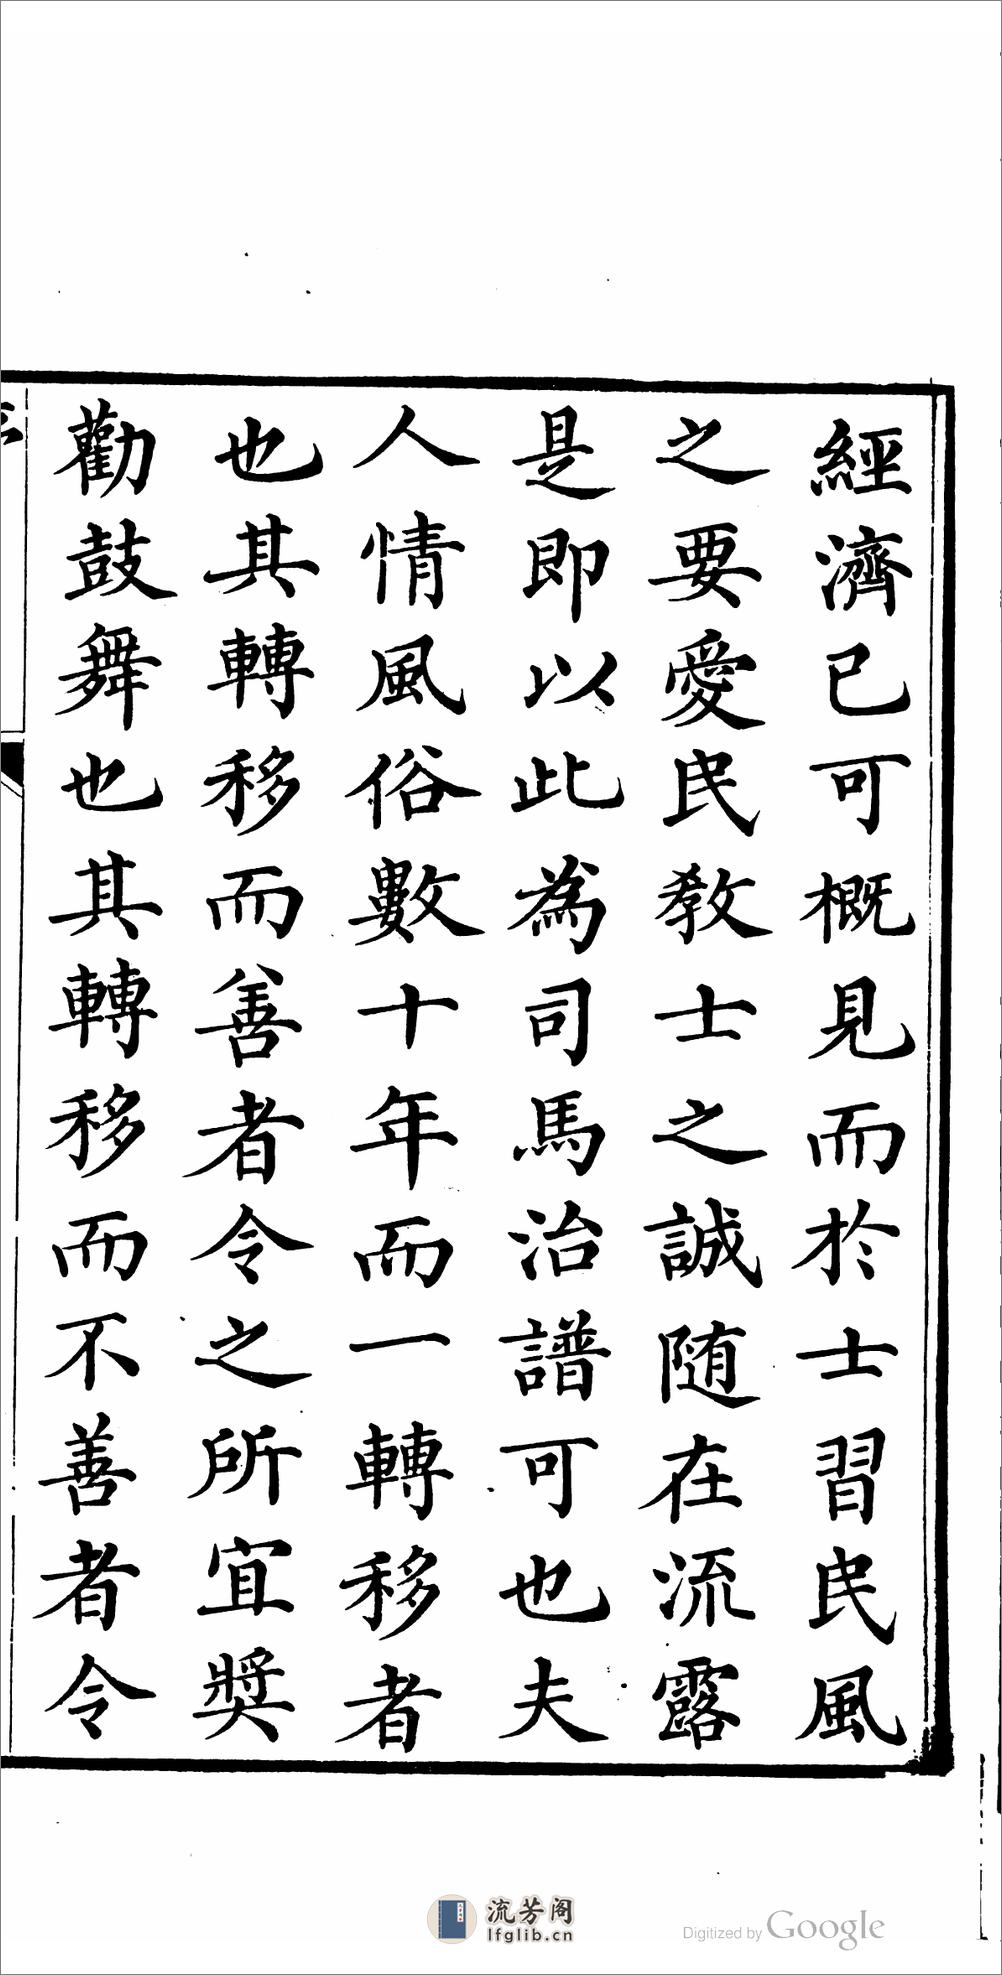 經濟已可概見而於士習民風
之要愛民教士之誠随在流露
是即以此為司馬治譜可也夫
人情風俗數十年而一轉移者
也其轉移而善者令之所宜奬
勸鼓舞也其轉移而不善者令
流芳阁
lfglib.cn
Digitized by Google